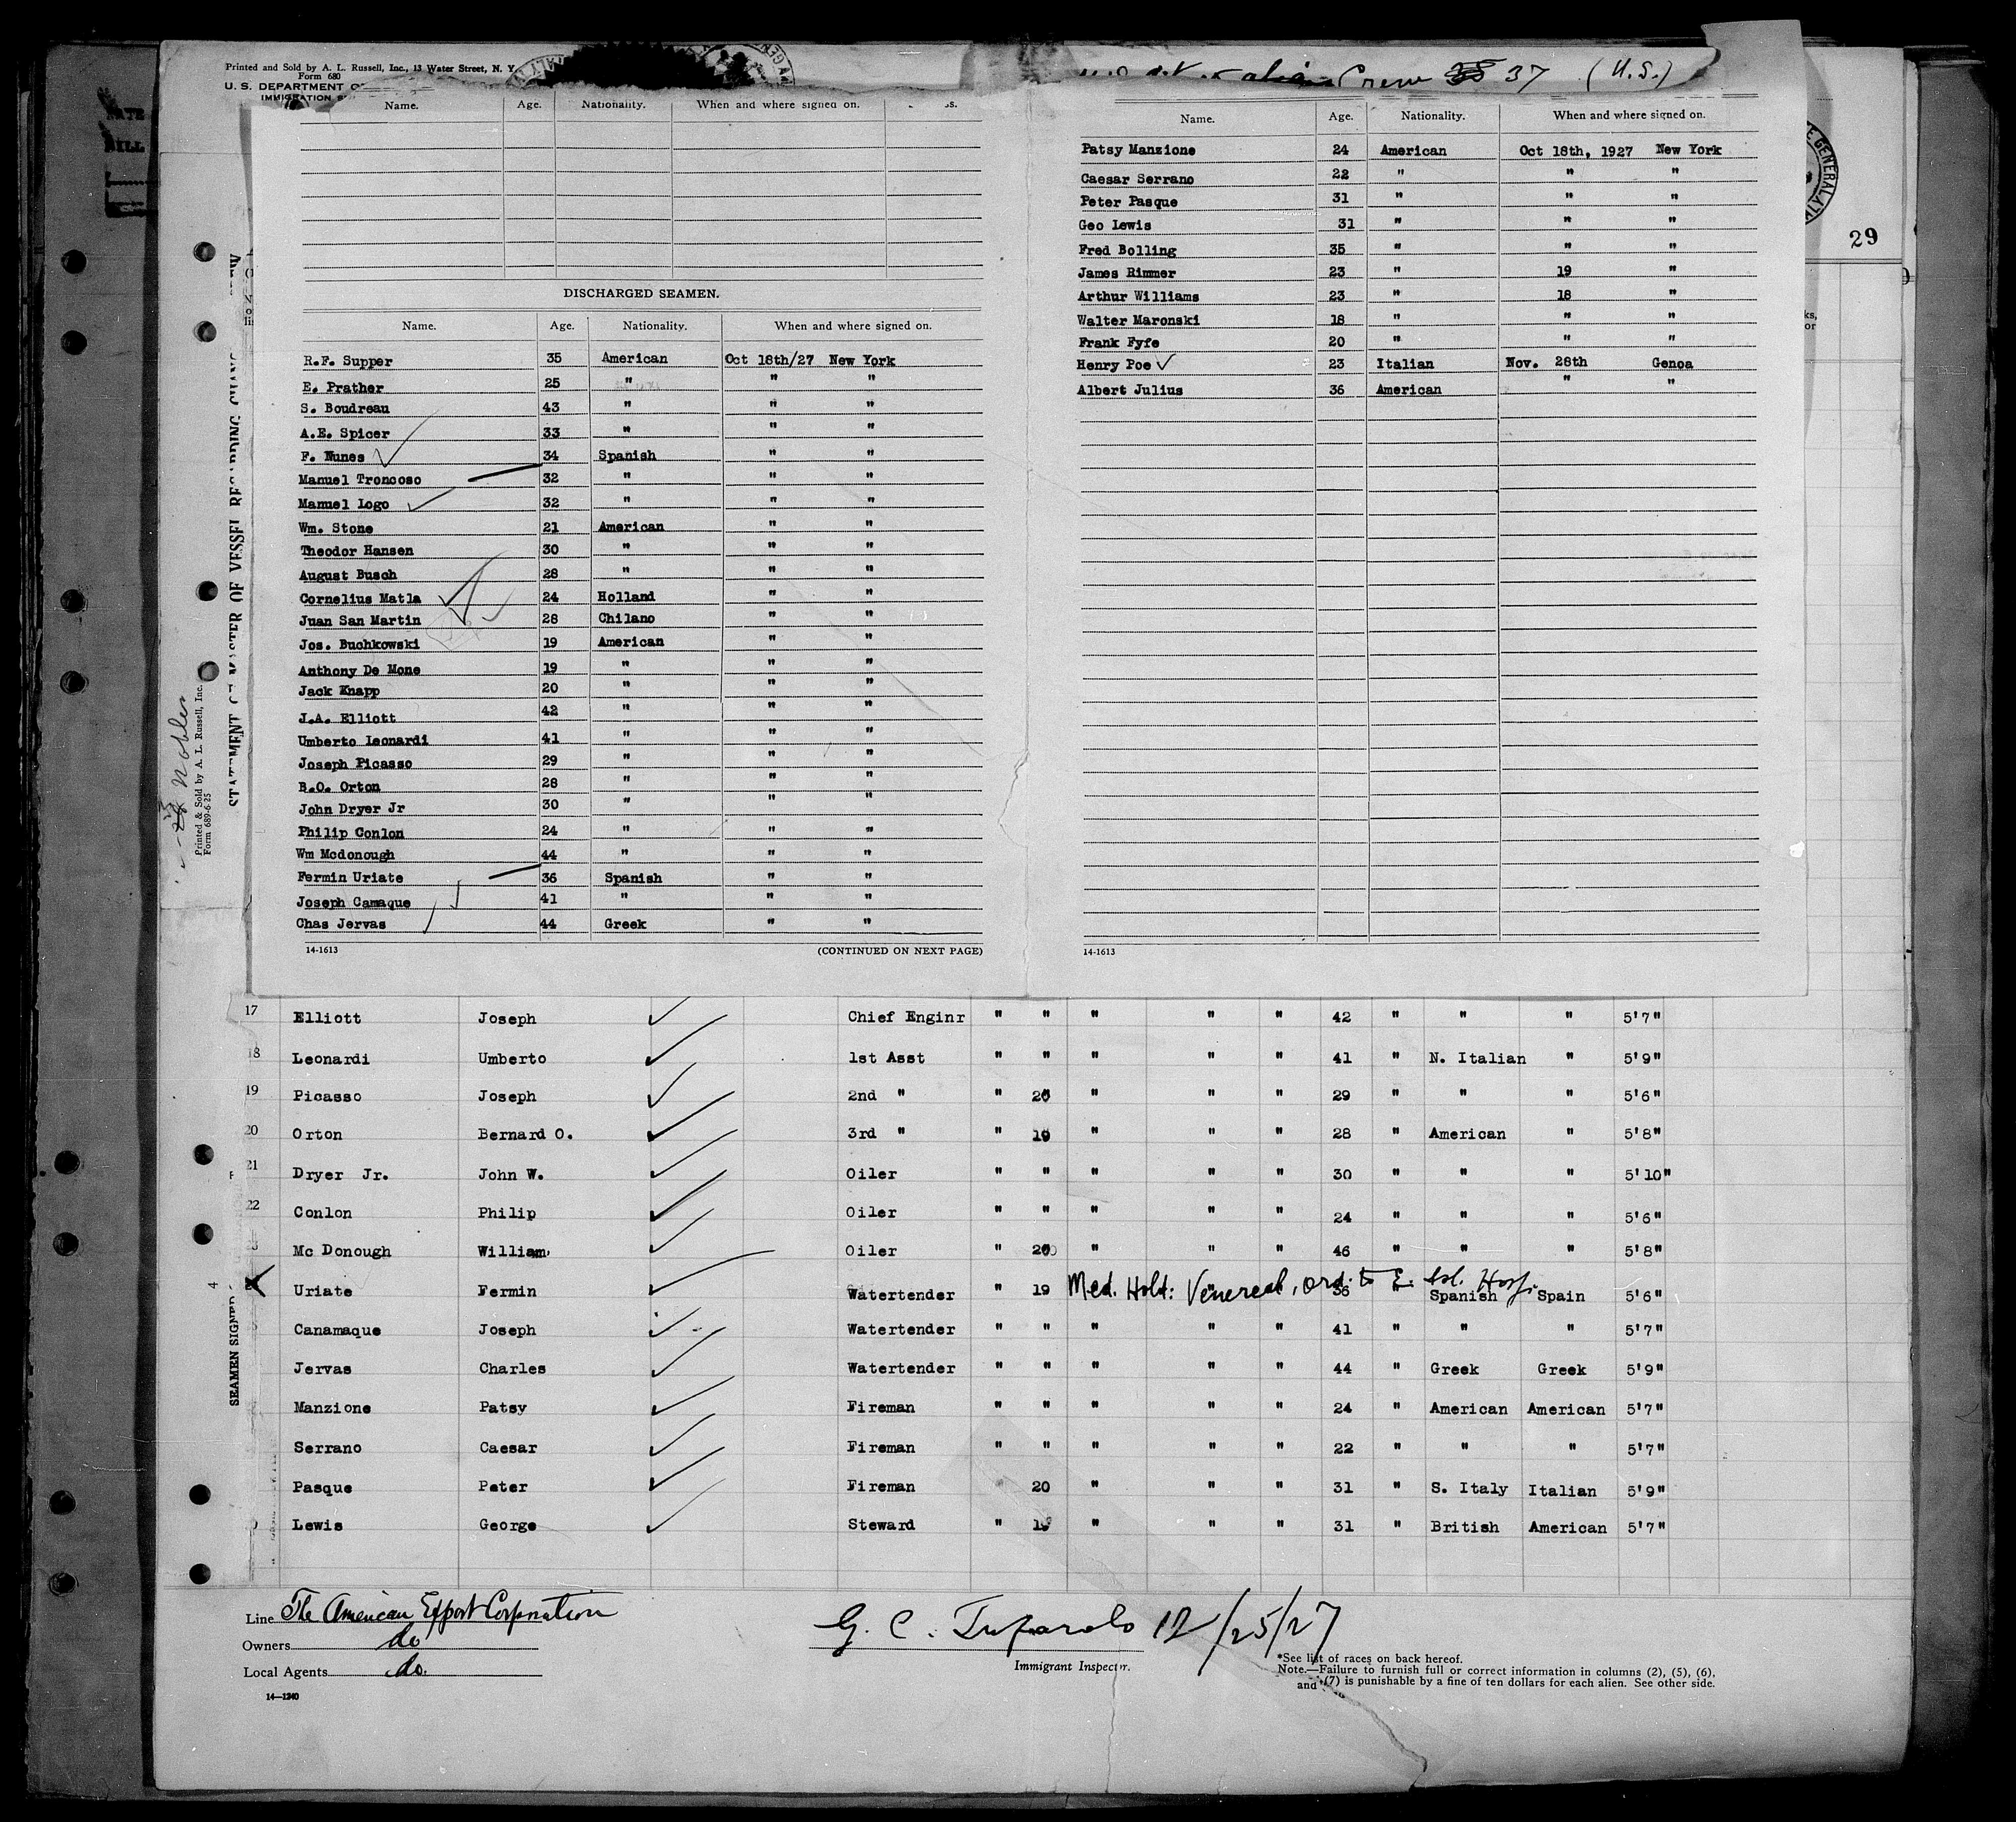 Printed and Sold by A. L. Russell, Inc., 13 Water Street, N. Y.
Form 680
U. S. DEPARTMENT
IMMIGRATION
Crew 37 (U.S.)
29
Name. Age. Nationality. When and where signed on.
DISCHARGED SEAMEN.
Name. Age. Nationality. When and where signed on.
R.F. Supper 35 American Oct 18th/27 New York
E. Prather 25 " " "
S. Boudreau 43 " " "
A.E. Spicer 33 " " "
F. Nunes 34 Spanish " "
Manuel Troncoso 32 " " "
Manuel Logo 32 " " "
Wm. Stone 21 American " "
Theodor Hansen 30 " " "
August Busch 28 " " "
Cornelius Matla 24 Holland " "
Juan San Martin 28 Chilano " "
Jos. Buchkowski 19 American " "
Anthony De Mone 19 " " "
Jack Knapp 20 " " "
J.A. Elliott 42 " " "
Umberto Leonardi 41 " " "
Joseph Picasso 29 " " "
B.O. Orton 28 " " "
John Dryer Jr 30 " " "
Philip Conlon 24 " " "
Wm Mcdonough 44 " " "
Fermin Uriate 36 Spanish " "
Joseph Camaque 41 " " "
Chas Jervas 44 Greek " "
14-1613 (CONTINUED ON NEXT PAGE)
Name. Age. Nationality. When and where signed on.
Patsy Manzione 24 American Oct 18th, 1927 New York
Caesar Serrano 22 " " "
Peter Pasque 31 " " "
Geo Lewis 31 " " "
Fred Bolling 35 " " "
James Rimmer 23 " 19 "
Arthur Williams 23 " 18 "
Walter Maronski 18 " " "
Frank Fyfe 20 " " "
Henry Poe 23 Italian Nov. 28th Genoa
Albert Julius 36 American " "
14-1613
Printed & Sold by A. L. Russell, Inc.
Form 689-6-25
STATEMENT OF MASTER OF VESSEL REGARDING
SEAMEN SIGNED
17 Elliott Joseph Chief Enginr " " " " " 42 " " " 5'7"
18 Leonardi Umberto 1st Asst " " " " " 41 " N. Italian " 5'9"
19 Picasso Joseph 2nd " " 20 " " " 29 " " " 5'6"
20 Orton Bernard O. 3rd " " 19 " " " 28 " American " 5'8"
21 Dryer Jr. John W. Oiler " " " " " 30 " " " 5'10"
22 Conlon Philip Oiler " " " " " 24 " " " 5'6"
23 Mc Donough William Oiler " 20 " " " 46 " " " 5'8"
Uriate Fermin Watertender " 19 Med. Hold: Venereal, ord. to E. Isl. Hosp. 36 " Spanish Spain 5'6"
Canamaque Joseph Watertender " " " " " 41 " " " 5'7"
Jervas Charles Watertender " " " " " 44 " Greek Greek 5'9"
Manzione Patsy Fireman " " " " " 24 " American American 5'7"
Serrano Caesar Fireman " " " " " 22 " " " 5'7"
Pasque Peter Fireman " 20 " " " 31 " S. Italy Italian 5'9"
Lewis George Steward " 19 " " " 31 " British American 5'7"
Line The American Export Corporation
Owners do
Local Agents do.
14—1240
G. C. 12/25/27
Immigrant Inspector.
*See list of races on back hereof.
Note.—Failure to furnish full or correct information in columns (2), (5), (6),
and (7) is punishable by a fine of ten dollars for each alien. See other side.